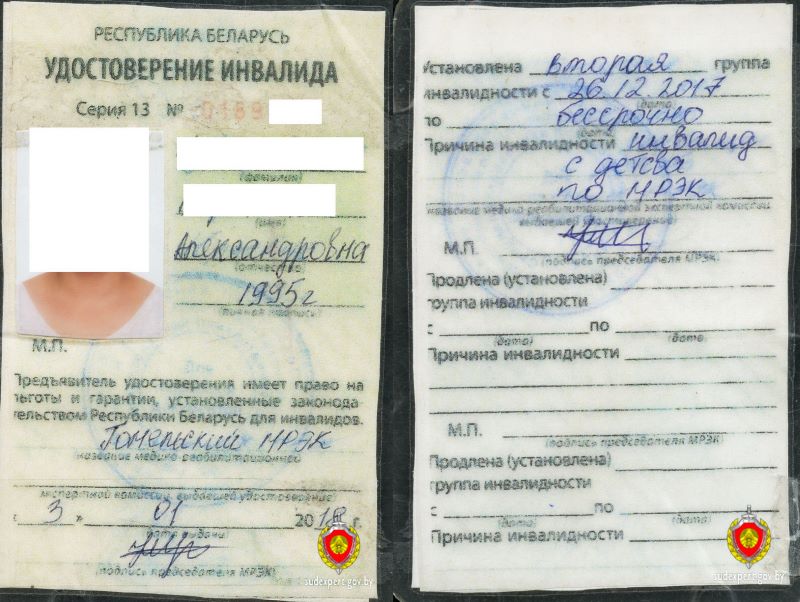 РЕСПУБЛИКА БЕЛАРУСЬ
УДОСТОВЕРЕНИЕ ИНВАЛИДА
Серия 13 № 0169
(фамилия)
(имя)
Александровна
(отчество)
1995г
(личная подпись)
М.П.
Предъявитель удостоверения имеет право на
льготы и гарантии, установленные законода-
тельством Республики Беларусь для инвалидов.
Гомельский МРЭК
название медико реабилитационной
экспертной комиссии, выдавшей удостоверение
« 3 » 01 2018 г.
дата выдачи
(подпись председателя МРЭК)
sudexpert.gov.by
Установлена вторая группа
инвалидности с 26.12.2017
(дата)
по бессрочно
(дата)
Причина инвалидности инвалид
с детсва
по МРЭК
название медико реабилитационной экспертной комиссии
выдавшей удостоверение
М.П.
(подпись председателя МРЭК)
Продлена (установлена)
группа инвалидности
с по
(дата) (дата)
Причина инвалидности
М.П.
(подпись председателя МРЭК)
Продлена (установлена)
группа инвалидности
с по
(дата) (дата)
Причина инвалидности
sudexpert.gov.by